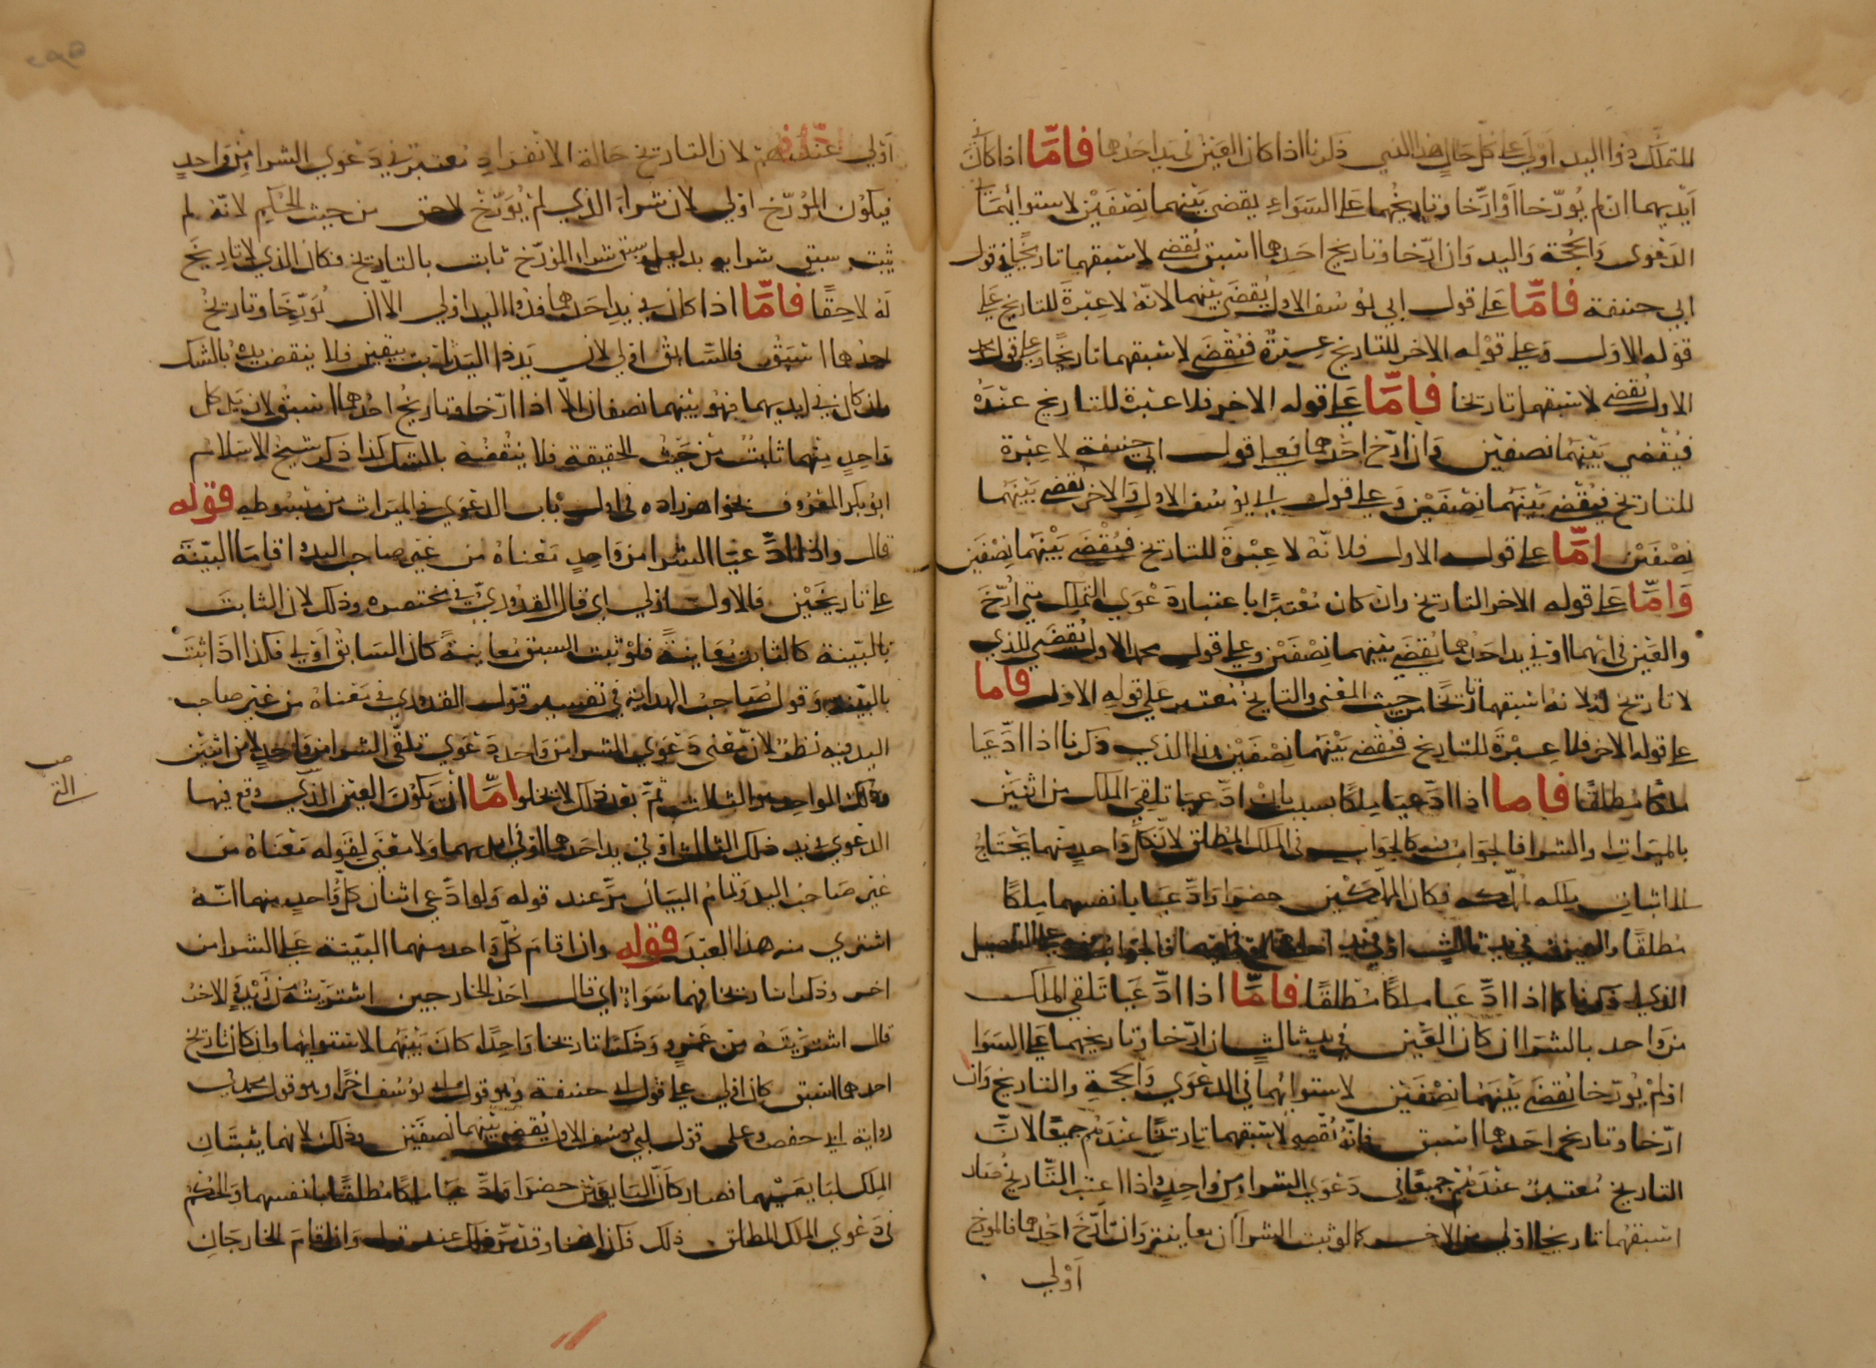 للتملك وذوا اليد اولي على كل حال هذا الذي ذكرنا اذا كان العين في يد احدهما فامّا اذا كان في
ايديهما ان لم يُورّخا اَوْ ارَّخا وتاريخُهما على السَوَاءِ يقضى بَيْنهما نِصْفَيْن لاستوائهمَا في
الدَعْوى وَالحُجّة وَاليد وَان ارّخا وتاريخ احَدهما اسبق يُقضى لاسبقهما تاريخًا في قول
ابي حنيفة فامّا على قول ابي يُوسُف الاول يُقضَى بيْنهما لانّهُ لا عِبْرةَ للتاريخ على
قوْله الاول وَعلى قوْله الاخر للتاريخ عِبْرةٌ فيُقضَى لاسبقهما تاريخًا وعلى قول محمد
الاول يُقضى لاسبقهما تاريخا فامّا عَلى قوله الاخر فلا عبْرة للتاريخ عنْدَهُ
فيُقْضي بَيْنهُمَا نصفيْن وَان ارّخ احَدهما فعلى قول ابي حنيفة لا عِبْرة
للتاريخ فيُقْضي بَيْنَهُمَا نِصْفَيْن وَعلى قول ابي يوسُف الاول وَالاخر يُقضى بَيْنهُمَا
نِصْفَيْن امّا على قوله الاول فلانّهُ لا عِبْرةَ للتاريخ فيُقْضَى بَيْنَهُمَا نِصْفَيْن
وَامّا عَلى قوله الاخر التاريخ وان كان مُعْتبرًا باعتبار دَعْوَي التملك متى اُرّخَ
والعَيْن في ايهما او في يد احَدهما يُقضَى بَيْنهما نِصْفَيْن وعلى قول محمد الاول يُقضَى للذي
لا تاريخ لهُ لانهُ اسبقهما تاريخًا من حيث المعْنى والتاريخُ مُعتبر عَلى قولهِ الاول فاما
على قوله الاخر فلا عِبْرَةَ للتاريخ فَيُقضَى بَيْنَهُمَا نِصْفَيْن هذا الذي ذكرنا اذا ادَّعَيَا
ملكًا مُطلقًا فاما اذا ادّعيا مِلكًا بسبب بانْ ادّعيا تلقيَ الملك من اثنَيْن
بالميراث او الشرا فالجوَابُ فيه كالجوَاب في الملك المُطلق لانّ كلّ وَاحدٍ منهما يَحْتَاجُ
الى اثبات مِلك مملّكه فكان المملّكَيْن حضرا وَادّعيَا بانفسهما مِلكًا
مُطلقًا والعين في يد ثالث او في يد احدهما فالجواب على التفصيل
الذي ذكرنا اذا ادَّعَيَا ملكًا مُطلقًا فامّا اذا ادَّعَيَا تَلقي الملك
من وَاحد بالشرا ان كان العَيْن في يد ثالثٍ ان ارّخا وتاريخهما عَلى السّوَا
او لمْ يُورّخا يُقضَى بَيْنَهُمَا نِصْفيْن لاستوائهما في الدعْوَي وَالحُجة والتاريخ وَان
ارّخا وتاريخ احَدهما اسبق فانّهُ يُقْضِي لاسبقهما تاريخًا عنْدَهُم جميْعًا لانّ
التاريخ مُعتبرٌ عنْدَهُم جميْعًا في دَعْوَي الشرا مِن وَاحدٍ واذا اعتبر التَّاريخُ صَار
اسبقهُما تاريخا اولي من الاخر كما لو ثبت الشرا ان معاينة وَان ارّخَ احَدُهما فالمورّخ
اَوْلي
اَوْلي عندهم لان التاريخ حالة الانفرادِ مُعتبَر في دَعْوي الشرا مِنْ وَاحدٍ
فيكوْن المُؤرّخ اوْلي لان شراءَ الذي لمْ يُوَرّخْ لاحق من حيث الحُكم لانّه لم
يثبت سبْق شرايه بدليل وسَبق شراء المُؤرّخ ثابت بالتاريخ فكان الذي لا تاريخَ
لهُ لاحِقًا فامّا اذا كان في يد احَدهما فذوا اليد اوْلي الاّ ان يُوَرّخَا وتاريخُ
احدُهما اسْبَقُ فالسّابقُ اوْلي لان يَدَ ذي اليَد ثابت بيقين فلا ينقضُ يدهُ بالشك
وان كان في ايديهما فهُوَ بيْنهما نصفان الاّ اذا ارّخا وتاريخُ احَدهما اسبق لان يَد كل
وَاحِدٍ منْهما ثابتٌ مِنْ حَيْثُ الحقيقة فلا ينْقضُه بالشك كذا ذكر شيخُ الاسلام
ابوبكر المعْرُوف بخواهرزاده في اول بَاب الدعْوَي في الميراث من مَبْسُوطه قوله
قال واذا ادَّعيَا الشرا من وَاحدٍ مَعْناهُ من غير صاحب اليد واقامَا البيّنَة
على تاريخَيْن فالاول اوْلي اي قال القدُوريّ في مختصره وذلك لان الثابتَ
بالبَيّنة كالثابت مُعَاينةً فلوْ ثبت السبق مُعاينةً كان السَابقُ اَوْلي فكذا اذا ثبَتَ
بالبيّنه وَقولُ صَاحبُ الهداية في تفسير قول القدوري مَعْناهُ من غير صاحب
اليد فيه نظرٌ لانّ مَعْنى دَعْوَي الشرا مِن وَاحد دَعْوَي تلقّي الشرا من وَاحدٍ لا من اثنين
وذلك الواحد هو الثالث ثمّ بعْد ذلك لا يخلوا امّا انْ يَكُوْنَ العيْن الذي وقع فيها
الدعْوي في يد ذلك الثالث او في يد احَدهما او في ايديهما وَلا مَعْنَى لقوله مَعْنَاهُ من
غير صَاحب اليد وتمامُ البيَان مرّ عند قوله وَلو ادّعى اثنان كلّ وَاحدٍ منهما انّهُ
اشترى منه هذا العبْدَ قوله وان اقام كلّ وَاحد منهما البيّنة عَلى الشرا من
اخر وذكرا تاريخا فهما سَوَاءٌ اي قال احَدُ الخارجين اشتريْتُه مِن زَيْدٍ والاخرُ
قال اشترَيْتَه مِن عَمْرٍو وَذكرا تاريخا وَاحِدًا كانَ بَيْنَهُما لاستوائهما وان كان تاريخ
احدهما اسبق كان اوْلي على قول ابي حنيفة وَهو قول ابي يوْسُف اخرًا وهو قول محمد في
رواية ابي حفص وعلى قول ابي يوسُف الاول يُقضي بيْنهما نصفَيْن وذلك لانهما يثبتَان
المِلك لبَايعَيْهما فصار كَانّ البَايعَيْن حضرا وَادَّعَيَا ملكًا مُطلقًا بانفسهما وَالحُكمُ
في دَعْوي الملك المطلق ذلك فكذا هنا وقدْ مَرّ ذلك عند قوله وَان اقامَ الخارجَانِ